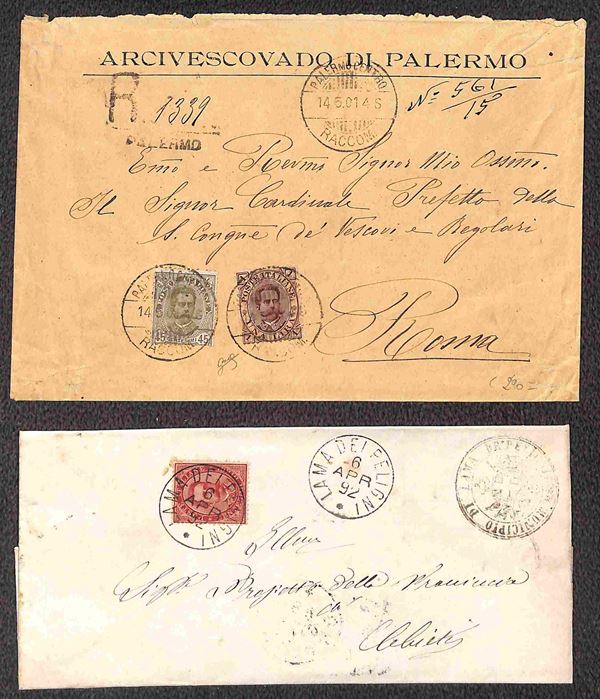 ARCIVESCOVADO DI PALERMO
R 1339
PALERMO
PALERMO CENTRO
14.5.01 4 S
RACCOM.
No 561/15
Emo e Revmo Signor Mio Ossmo.
Il Signor Cardinale Prefetto della
S. Congne de' Vescovi e Regolari
Roma
RACCOM.
45 45
POSTE ITALIANE
LAMA DEI PELIGNI
6
APR
92
LAMA DEI PELIGNI
6
APR
92
MUNICIPIO DI LAMA DEI PELIGNI
Prefetto della Provincia
Chieti